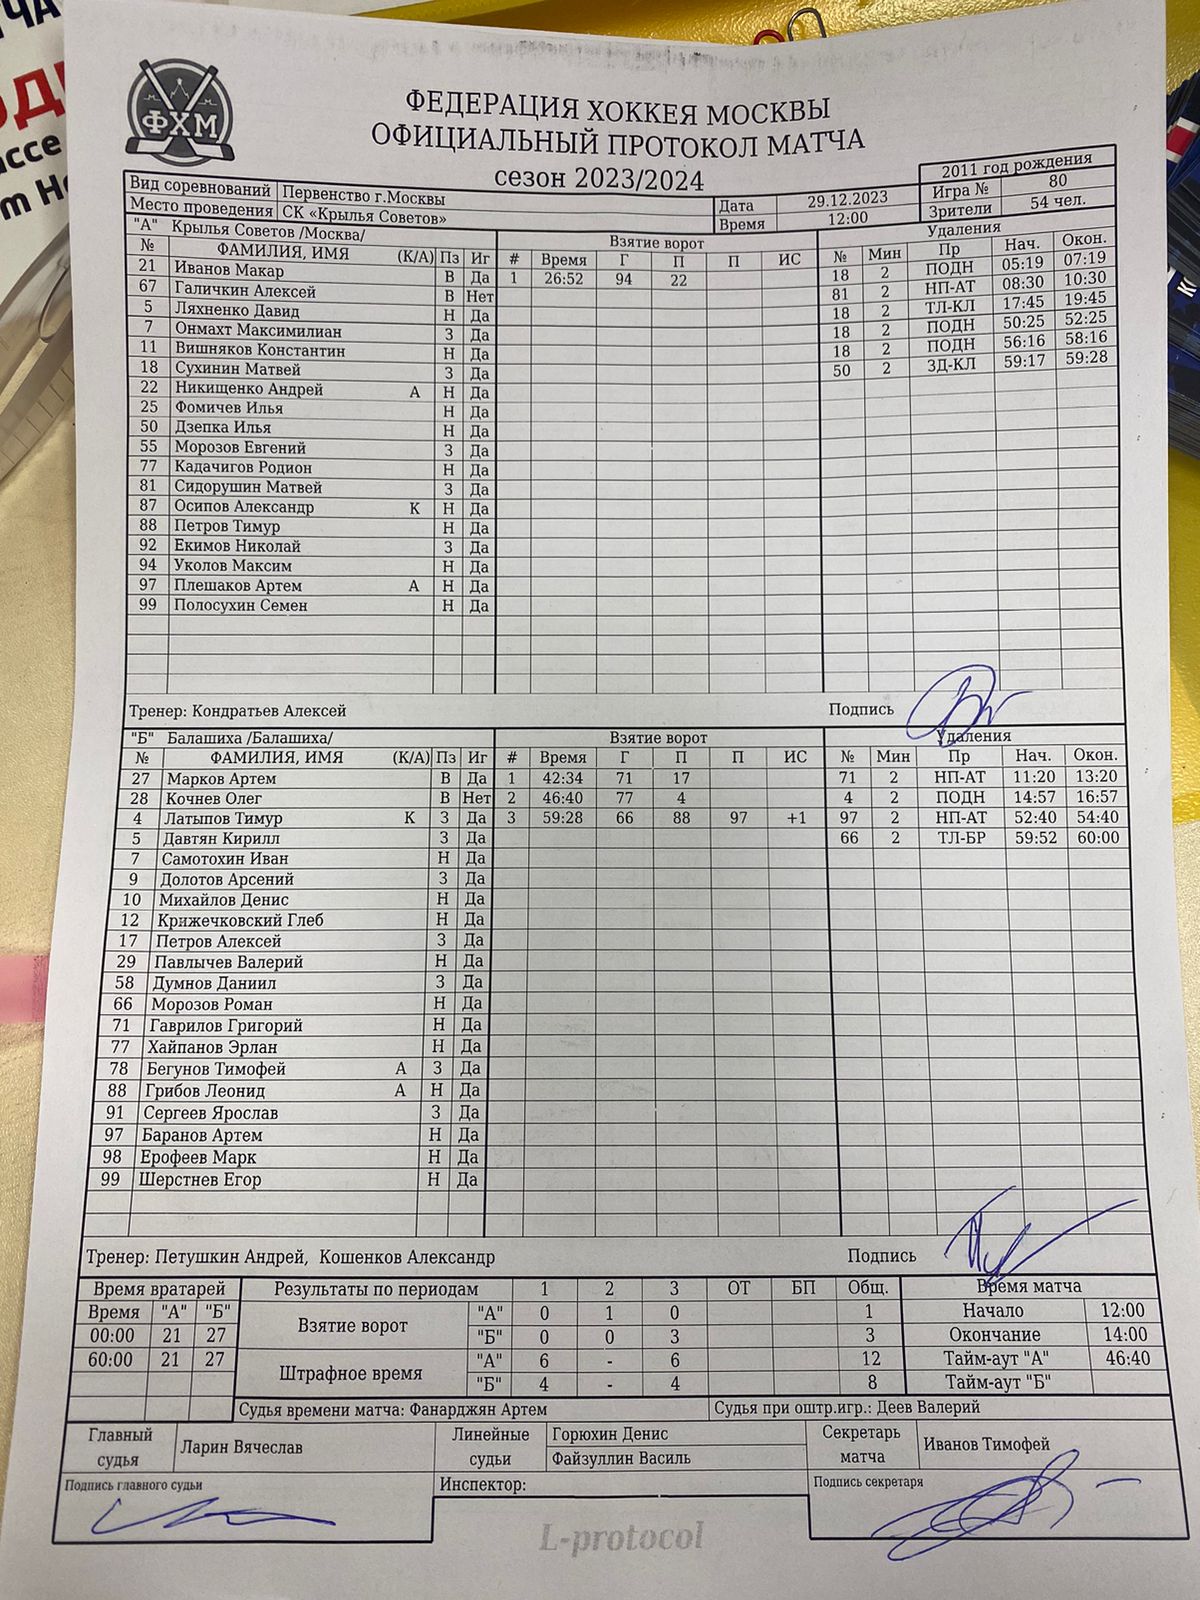 ФХМ
ФЕДЕРАЦИЯ ХОККЕЯ МОСКВЫ
ОФИЦИАЛЬНЫЙ ПРОТОКОЛ МАТЧА
сезон 2023/2024
2011 год рождения
Вид соревнований Первенство г.Москвы Дата 29.12.2023 Игра № 80
Место проведения СК «Крылья Советов» Время 12:00 Зрители 54 чел.
"А" Крылья Советов /Москва/ Взятие ворот Удаления
№ ФАМИЛИЯ, ИМЯ (К/А) Пз Иг # Время Г П П ИС № Мин Пр Нач. Окон.
21 Иванов Макар В Да 1 26:52 94 22 18 2 ПОДН 05:19 07:19
67 Галичкин Алексей В Нет 81 2 НП-АТ 08:30 10:30
5 Ляхненко Давид Н Да 18 2 ТЛ-КЛ 17:45 19:45
7 Онмахт Максимилиан З Да 18 2 ПОДН 50:25 52:25
11 Вишняков Константин Н Да 18 2 ПОДН 56:16 58:16
18 Сухинин Матвей З Да 50 2 ЗД-КЛ 59:17 59:28
22 Никищенко Андрей А Н Да
25 Фомичев Илья Н Да
50 Дзепка Илья Н Да
55 Морозов Евгений З Да
77 Кадачигов Родион Н Да
81 Сидорушин Матвей З Да
87 Осипов Александр К Н Да
88 Петров Тимур Н Да
92 Екимов Николай З Да
94 Уколов Максим Н Да
97 Плешаков Артем А Н Да
99 Полосухин Семен Н Да
Тренер: Кондратьев Алексей Подпись
"Б" Балашиха /Балашиха/ Взятие ворот Удаления
№ ФАМИЛИЯ, ИМЯ (К/А) Пз Иг # Время Г П П ИС № Мин Пр Нач. Окон.
27 Марков Артем В Да 1 42:34 71 17 71 2 НП-АТ 11:20 13:20
28 Кочнев Олег В Нет 2 46:40 77 4 4 2 ПОДН 14:57 16:57
4 Латыпов Тимур К З Да 3 59:28 66 88 97 +1 97 2 НП-АТ 52:40 54:40
5 Давтян Кирилл З Да 66 2 ТЛ-БР 59:52 60:00
7 Самотохин Иван Н Да
9 Долотов Арсений З Да
10 Михайлов Денис Н Да
12 Крижечковский Глеб Н Да
17 Петров Алексей З Да
29 Павлычев Валерий Н Да
58 Думнов Даниил З Да
66 Морозов Роман Н Да
71 Гаврилов Григорий Н Да
77 Хайпанов Эрлан Н Да
78 Бегунов Тимофей А З Да
88 Грибов Леонид А Н Да
91 Сергеев Ярослав З Да
97 Баранов Артем Н Да
98 Ерофеев Марк Н Да
99 Шерстнев Егор Н Да
Тренер: Петушкин Андрей, Кошенков Александр Подпись
Время вратарей Результаты по периодам 1 2 3 ОТ БП Общ. Время матча
Время "А" "Б" Взятие ворот "А" 0 1 0 1 Начало 12:00
00:00 21 27 "Б" 0 0 3 3 Окончание 14:00
60:00 21 27 Штрафное время "А" 6 - 6 12 Тайм-аут "А" 46:40
"Б" 4 - 4 8 Тайм-аут "Б"
Судья времени матча: Фанарджян Артем Судья при оштр.игр.: Деев Валерий
Главный судья Ларин Вячеслав Линейные судьи Горюхин Денис
Файзуллин Василь Секретарь матча Иванов Тимофей
Подпись главного судьи Инспектор: Подпись секретаря
L-protocol